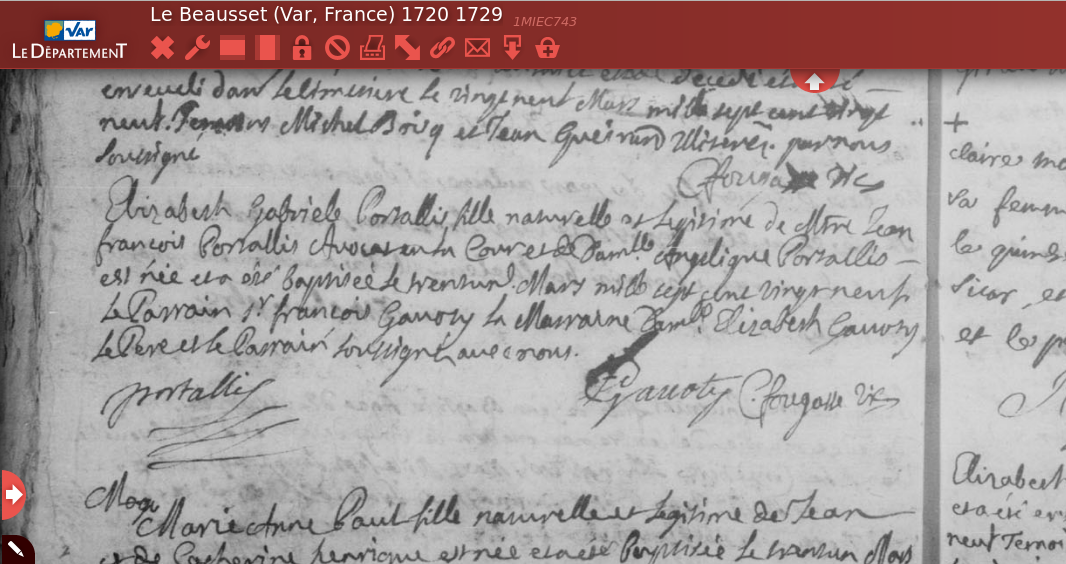 Le Beausset (Var, France) 1720 1729 1MIEC743
VAR
LE DÉPARTEMENT
enseveli dans le Cimetiere le vingt neuf Mars mille sept cent vingt
neuf. Temoins Michel et Jean par nous
soussigné
Fougasse vic
Elizabeth Gabriele Portallis fille naturelle et legitime de Mtre Jean
francois Portallis Avocat en la Cour et de Damlle Angelique Portallis
est née et a été baptisée le trentun Mars mille sept cent vingt neuf
Le Parrain Sr francois Gauoty La Marraine Damlle Elizabeth Gauoty
Le Pere et le Parrain soussignés avec nous.
portallis
Gauoty Fougasse vic
Marie Anne Paul fille naturelle et legitime de Jean
et de Catherine henrique est née et a été Baptisée le trentun Mars
+
claire
va femm
le
et le
Elizabeth
et a été
neuf Temoi